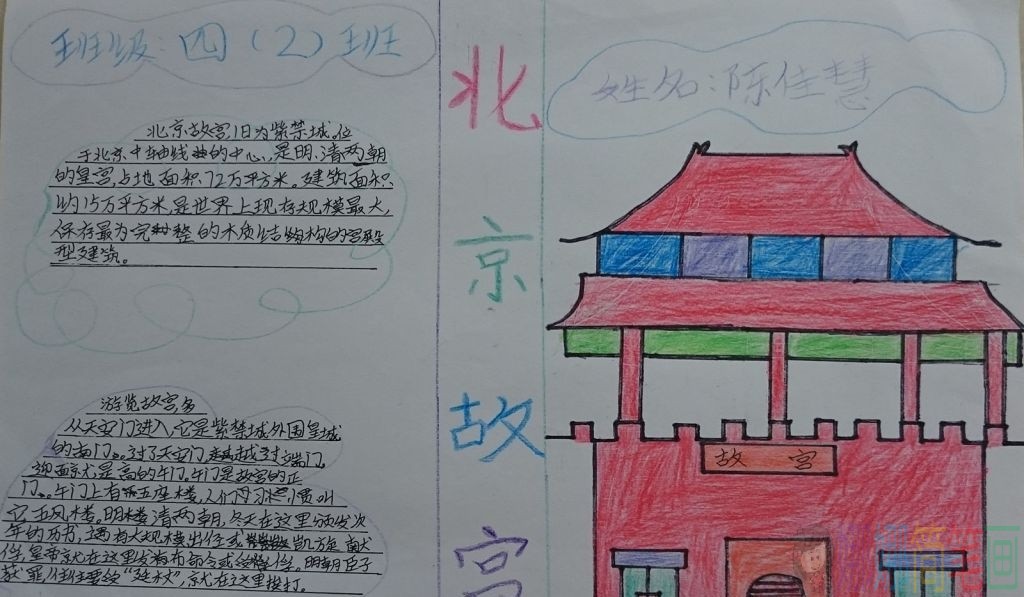 班级:四(2)班
北京故宫
姓名:陈佳慧
北京故宫,旧为紫禁城。位
于北京中轴线的中心,是明、清两朝
的皇宫,占地面积72万平方米。建筑面积
约15万平方米,是世界上现存规模最大,
保存最为完整的木质结构的宫殿
型建筑。
游览故宫
从天安门进入,它是紫禁城外围皇城
的前门。过了天安门,越过端门,
迎面就是高的午门,午门是故宫的正
门。午门上有五座楼,人们习惯叫
它五凤楼。明清两朝,冬天在这里颁发次
年的历书,遇有大规模出征或凯旋献
俘,皇帝就在这里发布命令或。明朝臣子
获罪,往往要给"廷杖",就在这里挨打。
故宫